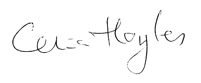 Celia Hoyles